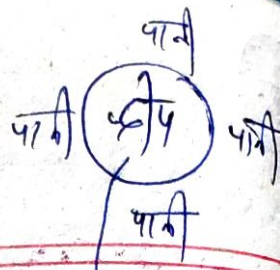 पानी
पानी द्वीप पानी
पानी